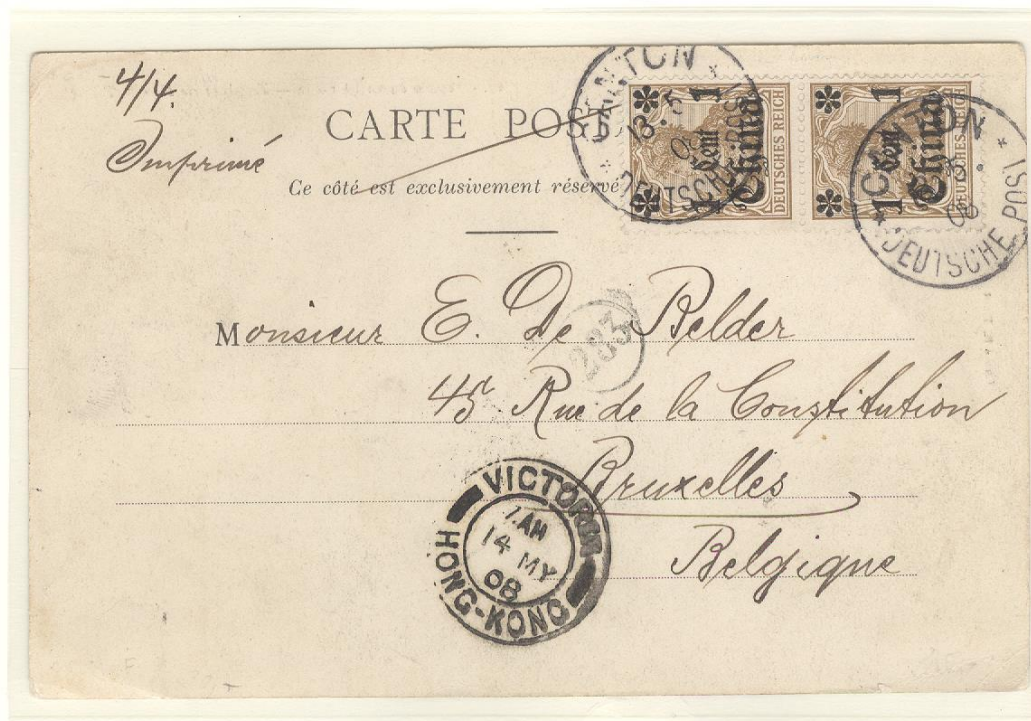 4/4.
Imprimé
CARTE POST
Ce côté est exclusivement réservé
CANTON
13.5
DEUTSCHE POST
1 Cent 1
China
DEUTSCHES REICH
1 Cent 1
China
DEUTSCHES REICH
DEUTSCHE POST
08
Monsieur E. De Belder
283
45 Rue de la Constitution
Bruxelles
Belgique
VICTORIA
7.AM
14 MY
08
HONG-KONG